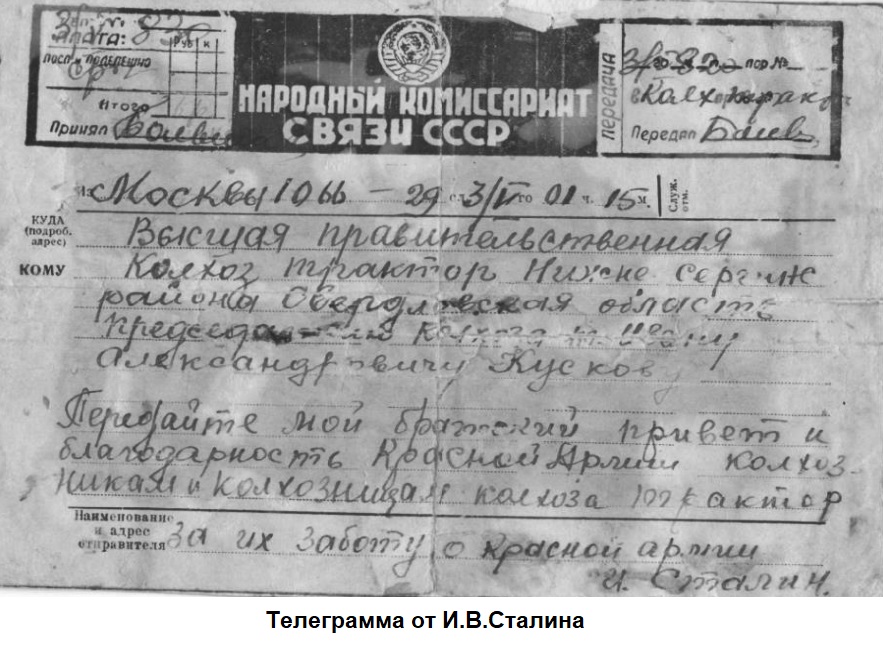 Плата:
руб к
Итого
Принял
НАРОДНЫЙ КОМИССАРИАТ
СВЯЗИ СССР
ПЕРЕДАЧА
го пор №
Колхоз
Передал Баев
Из Москвы 1066 — 29 сл. 3/V го 01 ч. 15 м.
Служ. отм.
КУДА
(подроб. адрес)
Высшая правительственная
КОМУ
Колхоз трактор Нижне Сергиж
района Свердловская область
Председателю колхоза
Александровичу Кускову
Передайте мой братский привет и
благодарность Красной Армии колхоз-
никам и колхозницам колхоза трактор
Наименование и адрес отправителя
за их заботу о красной армии
И. Сталин.
Телеграмма от И.В.Сталина